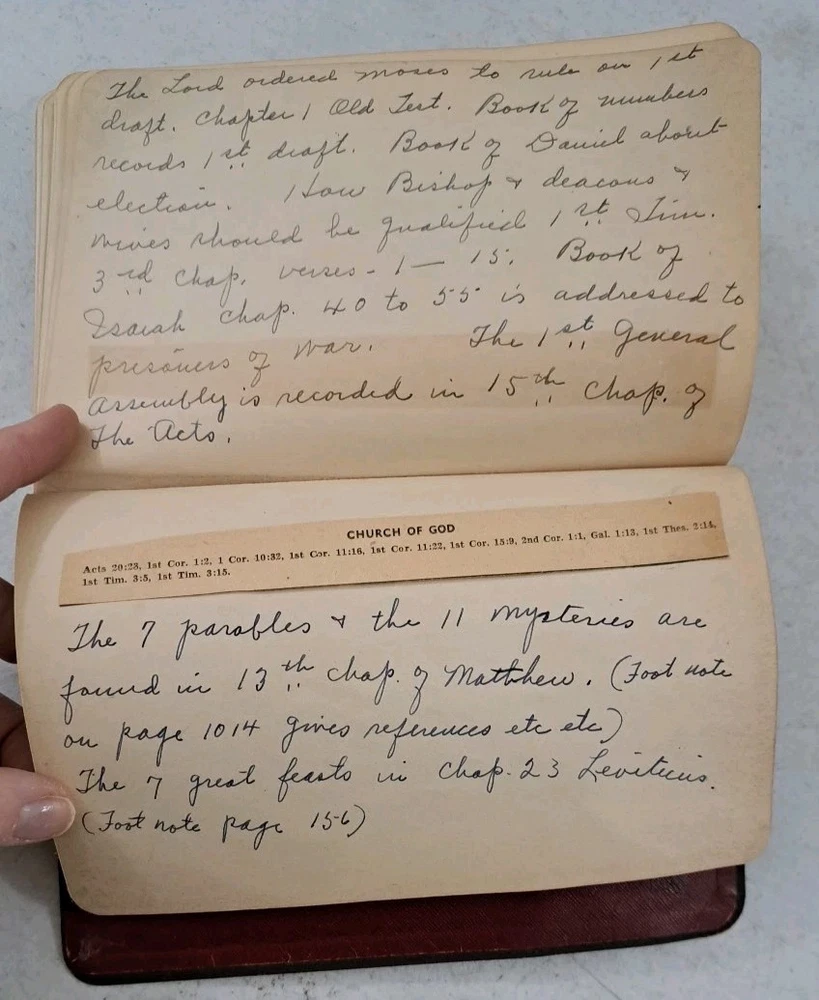 The Lord ordered Moses to rule on 1st
draft. Chapter 1 Old Test. Book of numbers
records 1st draft. Book of Daniel about
election. How Bishop & deacons &
wives should be qualified 1st Tim.
3rd Chap. verses - 1 — 15. Book of
Isaiah Chap. 40 to 55 is addressed to
prisoners of war. The 1st General
Assembly is recorded in 15th Chap. of
The Acts.
CHURCH OF GOD
Acts 20:28, 1st Cor. 1:2, 1 Cor. 10:32, 1st Cor. 11:16, 1st Cor. 11:22, 1st Cor. 15:9, 2nd Cor. 1:1, Gal. 1:13, 1st Thes. 2:14,
1st Tim. 3:5, 1st Tim. 3:15.
The 7 parables & the 11 mysteries are
found in 13th Chap. of Matthew. (Foot note
on page 1014 gives references etc etc)
The 7 great feasts in Chap. 23 Leviticus.
(Foot note page 156)